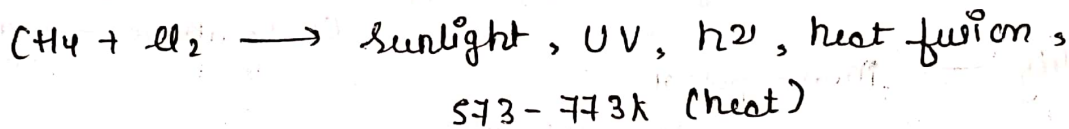 CH4 + Cl2 ⟶ Sunlight, UV, hν, heat fusion,
573 - 773k (heat)